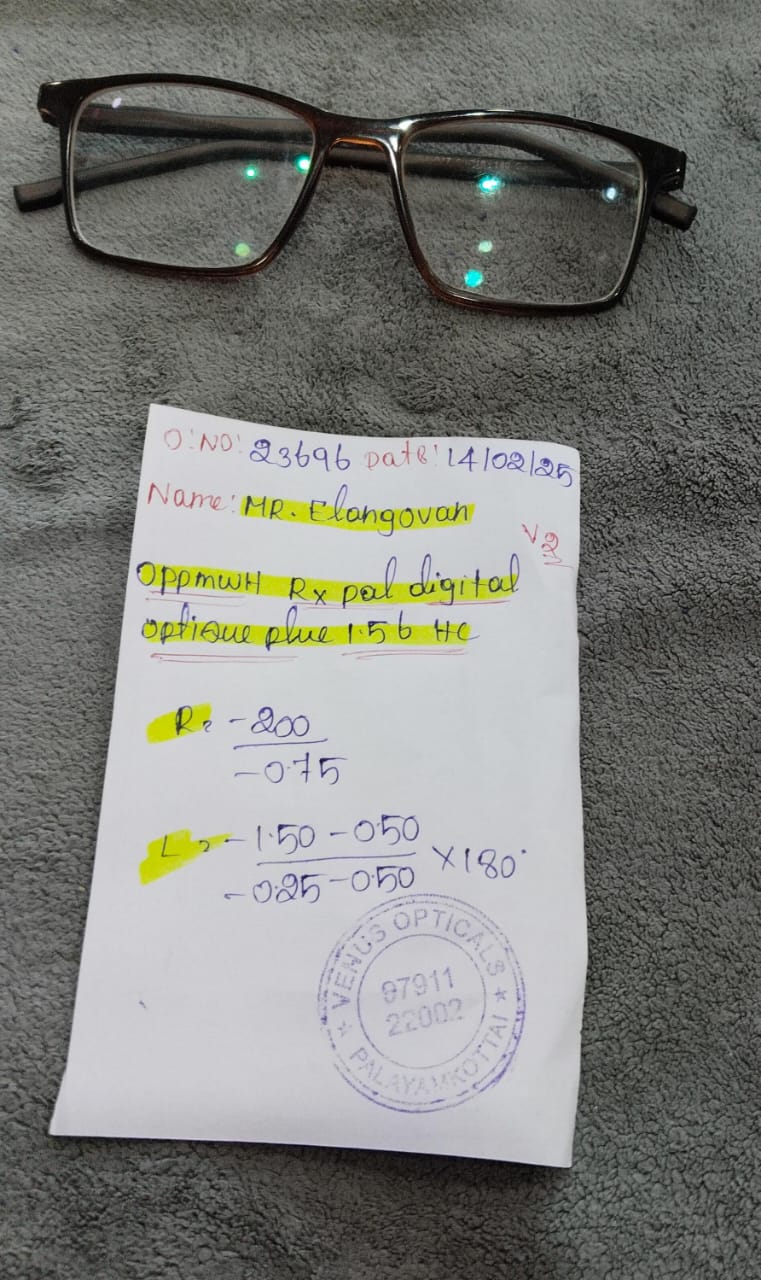 O.NO: 23696 Date: 14/02/25
Name: MR. Elangovan
V2
OPPMWH Rx pal digital
optique plue 1.56 HC
R: -200
-0.75
L: -1.50 -0.50
-0.25 -0.50 X180°
★ VENUS OPTICALS ★
97911
22002
PALAYAMKOTTAI